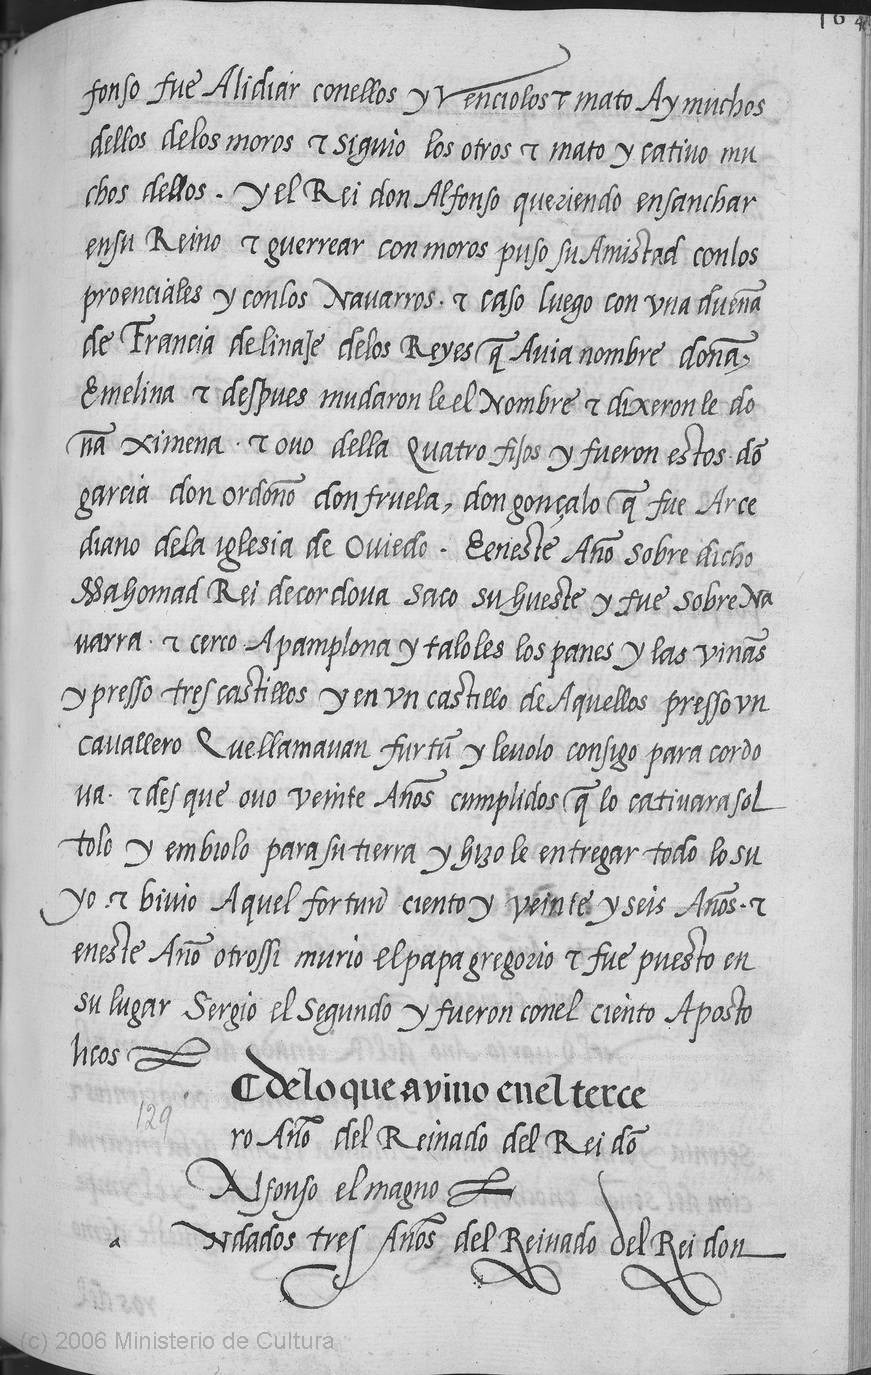 164
fonso fue Alidiar conellos y Venciolos ⁊ mato Ay muchos
dellos delos moros ⁊ siguio los otros ⁊ mato y cativo mu
chos dellos . Y el Rei don Alfonso queriendo ensanchar
ensu Reino ⁊ guerrear con moros puso su Amistad conlos
proenciales y conlos Navarros . ⁊ caso luego con vna dueña
de Francia de linaje delos Reyes q̃ Avia nombre doña,
Emelina ⁊ despues mudaron le el Nombre ⁊ dixeron le do
ña Ximena . ⁊ ovo della Quatro fijos y fueron estos . dõ
garcia don ordoño don fruela, don gonçalo q̃ fue Arce
diano dela iglesia de Oviedo . Eeneste Año sobre dicho
Mahomad Rei decordova saco su hueste y fue sobre Na
uarra . ⁊ cerco Apamplona y taloles los panes y las viñas
y presso tres castillos y en vn castillo de Aquellos presso vn
cavallero Quellamavan furtũ y levolo consigo para cordo
ua . ⁊ des que ovo veinte Años cumplidos q̃ lo cativara sol
tolo y embiolo para su tierra y hizo le entregar todo lo su
yo . ⁊ bivio Aquel fortun ciento y veinte y seis Años . ⁊
eneste Año otrossi murio el papa gregorio ⁊ fue puesto en
su lugar Sergio el Segundo y fueron conel ciento Aposto
licos
129
C delo que avino en el terce
ro Año del Reinado del Rei dõ
Alfonso el magno
a Ndados tres Años del Reinado del Rei don
(c) 2006 Ministerio de Cultura